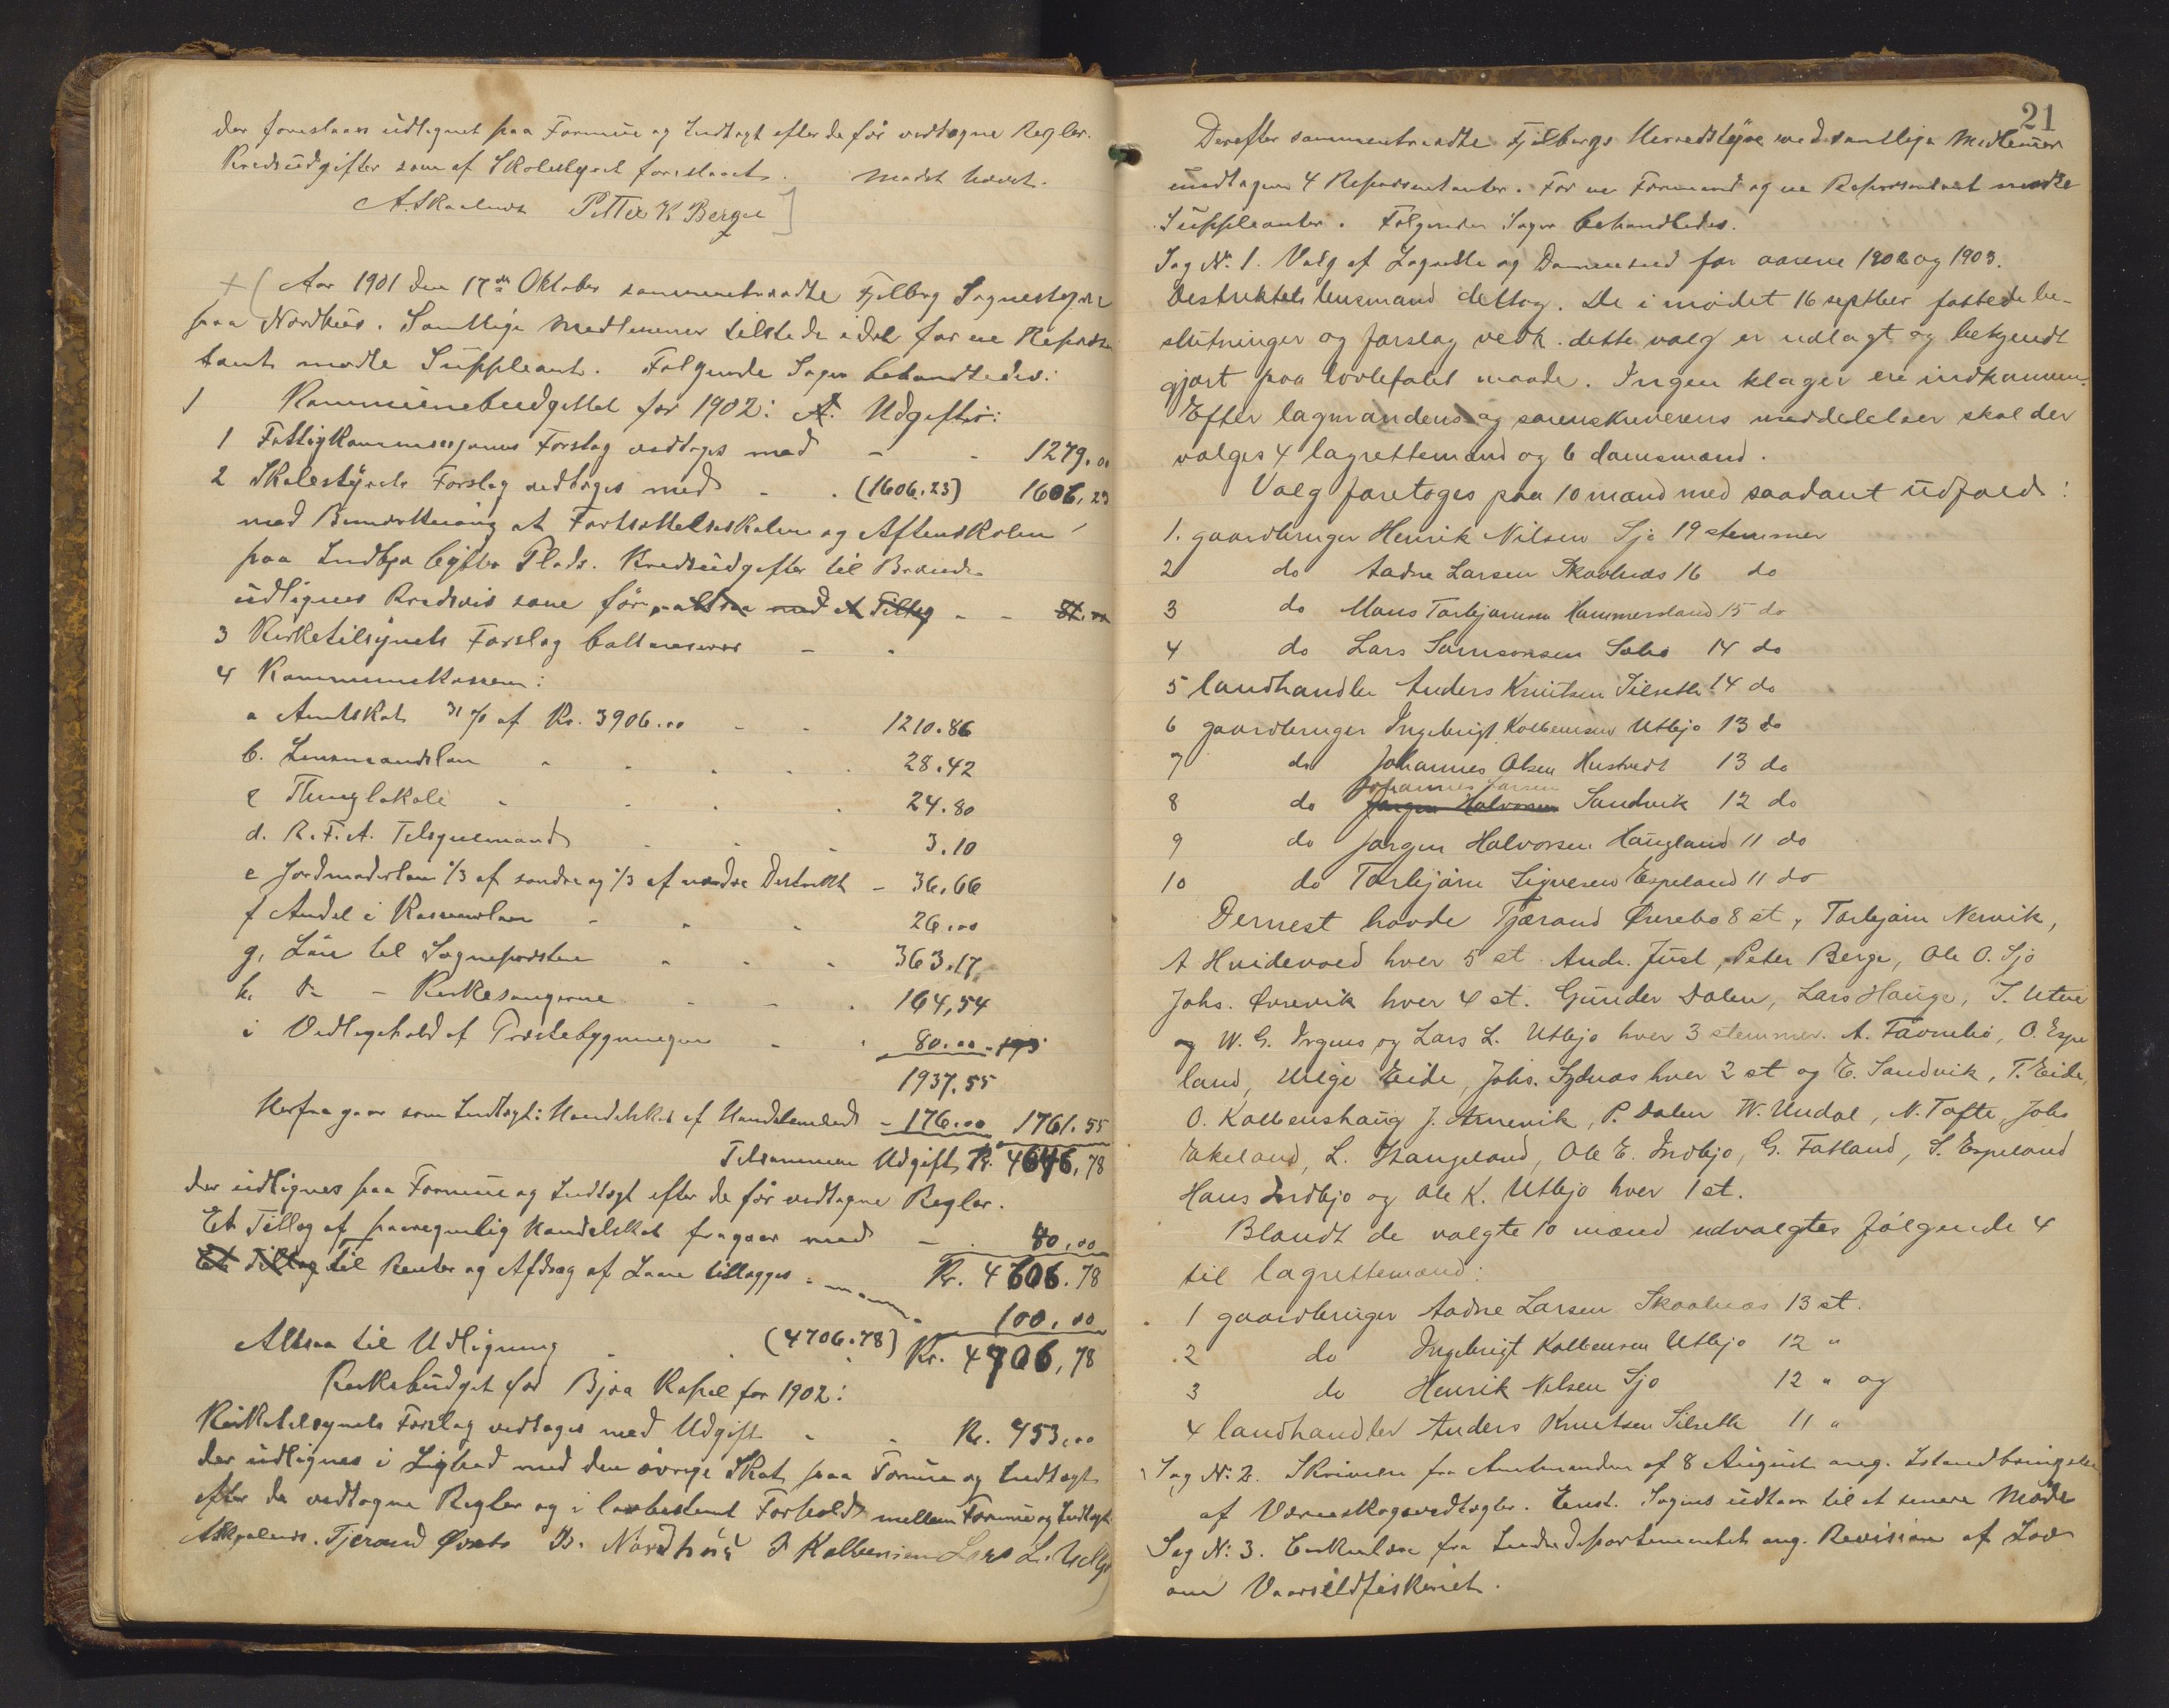 der foreslaaes udlignet paa Formue og Indtægt efter de før vedtagne Regler.
Kredsudgifter som af Skolestyret foreslaaet. Mødet hævet.
A. Skaalnes Petter K Berge
Aar 1901 den 17de Oktober sammentraadte Fjelberg Sognestyre
paa Nordhus. Samtlige Medlemmer tilstede idet for en Repræsen
tant mødte Suppleant. Følgende Sager behandledes:
1 Kommunebudgettet for 1902: A. Udgifter:
1 Fattigkommissjonens Forslag vedtoges med - - 1279.00
2 Skolestyrets Forslag vedtoges med - . (1606.23) 1606,23
med Bemærkning at Fortsættelsesskolen og Aftenskolen
paa Indbjo byttes Plads. Kredsudgifter til Brænde
udlignes Kredsvis som før, altsaa med et Tillæg - - 81.00
3 Kirketilsynets Forslag - -
4 Kommunekassen:
a Amtskat 31 % af Kr. 3906.00 - - 1210.86
b. Lensmandsløn 28.42
c Thinglokale 24.80
d. R.F.A. Tilsynsmand 3.10
e Jordmoderløn 1/3 af søndre og 1/3 af nordre Distrikt - 36.66
f Andel i Kasserløn 26.00
g, Løn til Sognepresten 363.17
h. Do - Kirkesangerne 164,54
i Vedligehold af Præstebygningen 80.00
1937.55
Herfra gaar som Indtægt: Handelskat af Handelsmænd - 176.00 1761.55
Tilsammen Udgift Kr. 4646,78
der udlignes paa Formue og Indtægt efter de før vedtagne Regler.
Et Tillæg af paaregnelig Handelskat fragaar med - . 40,00
Et Tillæg til Renter og Afdrag af Laan tillægges - Kr. 4606.78
100,00
Altsaa til Udligning . . (4706.78) Kr. 4706,78
Kirkebudget for Bjoa Kapel for 1902:
Kirketilsynets Forslag vedtages med Udgift - - Kr. 453,00
der udlignes i Lighed med den øvrige Skat paa Formue og Indtægt
efter de vedtagne Regler og i lovbestemt Forhold mellem Formue og Indtægt
A Skaalnes. Tjerand Øvrebø B. Nordhus I Kolbensen Lars L. Utbjo
21
Derefter sammentraadte Fjelbergs Herredstyre med samtlige Medlemer
undtagen 4 Repræsentanter. For en Formand og en Repræsentant mødte
Suppleanter. Følgende Sager behandledes.
Sag No. 1. Valg af Lagrette og Domsmænd for aarene 1902 og 1903.
Destriktets lensmand deltog. De i mødet 16 septber fattede be-
slutninger og forslag vedk. dette valg er udlagt og bekjendt
gjort paa lovbefalet maade. Ingen klager ere indkommen.
Efter lagmandens og sorenskriverens meddelelser skal der
vælges 4 lagrettemænd og 6 domsmænd.
Valg foretoges paa 10 mænd med saadant udfald:
1. gaardbruger Henrik Nilsen Sjo 19 stemmer
2 do Aadne Larsen Skaalnæs 16 do
3 do Mons Torbjørnsen Hammersland 15 do
4 do Lars Samsonsen Sæbø 14 do
5 landhandler Anders Knutsen Silseth 14 do
6 gaardbruger Ingebrigt Kolbensen Utbjo 13 do
7 do Johannes Olsen Hustvedt 13 do
Johannes Larsen
8 do Jørgen Halvorsen Sandvik 12 do
9 do Jørgen Halvorsen Haugland 11 do
10 do Torbjørn Sigvesen Espeland 11 do
Dernest havde Tjærand Øvrebø 8 st, Torbjørn Nervik,
A Hvidevold hver 5 st. Andr. Juel, Peter Berge, Ole O. Sjo
Johs. Øvrevik hver 4 st. Gunder Dalen, Lars Hauge, T. Utne
og W. G. Irgens og Lars L. Utbjo hver 3 stemmer. A. Favnebø, O. Espe
land, Helge Eide, Johs. Sydnæs hver 2 st og E. Sandvik, T. Eide,
O. Kolbenshaug J. Arnevik, P. Dalen W. Undal, N. Tofte, Johs
Ekeland, L. Stangeland, Ole E. Indbjo, G. Fatland, S. Espeland
Hans Indbjo og Ole K. Utbjo hver 1 st.
Blandt de valgte 10 mænd udvalgtes følgende 4
til lagrettemænd:
1 gaardbruger Aadne Larsen Skaalnæs 13 st.
2 do Ingebrigt Kolbensen Utbjo 12 "
3 do Henrik Nilsen Sjo 12 " og
4 landhandler Anders Knutsen Silseth 11 "
Sag No. 2. Skrivelse fra Amtmanden af 8 August ang. Istandbringelse
af Værneskogsvedtægter. Enst. Sagens udstaar til et senere Møde
Sag No. 3. Cirkulære fra Indredepartementet ang. Revision af Lov
om Vaarsildfiskeriet.